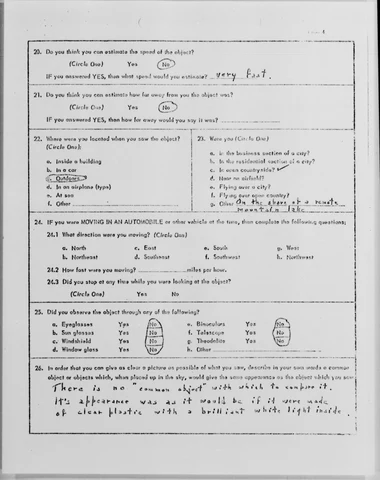 20. Do you think you can estimate the speed of the object?
(Circle One) Yes No
IF you answered YES, then what speed would you estimate? very fast.
21. Do you think you can estimate how far away from you the object was?
(Circle One) Yes No
IF you answered YES, then how far away would you say it was?
22. Where were you located when you saw the object?
(Circle One):
a. Inside a building
b. In a car
c. Outdoors
d. In an airplane (type)
e. At sea
f. Other
23. Were you (Circle One)
a. In the business section of a city?
b. In the residential section of a city?
c. In open countryside?
d. Near an airfield?
e. Flying over a city?
f. Flying over open country?
g. Other On the shore of a remote
mountain lake
24. IF you were MOVING IN AN AUTOMOBILE or other vehicle at the time, then complete the following questions:
24.1 What direction were you moving? (Circle One)
a. North c. East e. South g. West
b. Northeast d. Southeast f. Southwest h. Northwest
24.2 How fast were you moving? miles per hour.
24.3 Did you stop at any time while you were looking at the object?
(Circle One) Yes No
25. Did you observe the object through any of the following?
a. Eyeglasses Yes No e. Binoculars Yes No
b. Sun glasses Yes No f. Telescope Yes No
c. Windshield Yes No g. Theodolite Yes No
d. Window glass Yes No h. Other
26. In order that you can give as clear a picture as possible of what you saw, describe in your own words a common
object or objects which, when placed up in the sky, would give the same appearance as the object which you saw.
There is no "common object" with which to compare it.
It's appearance was as it would be if it were made
of clear plastic with a brilliant white light inside.